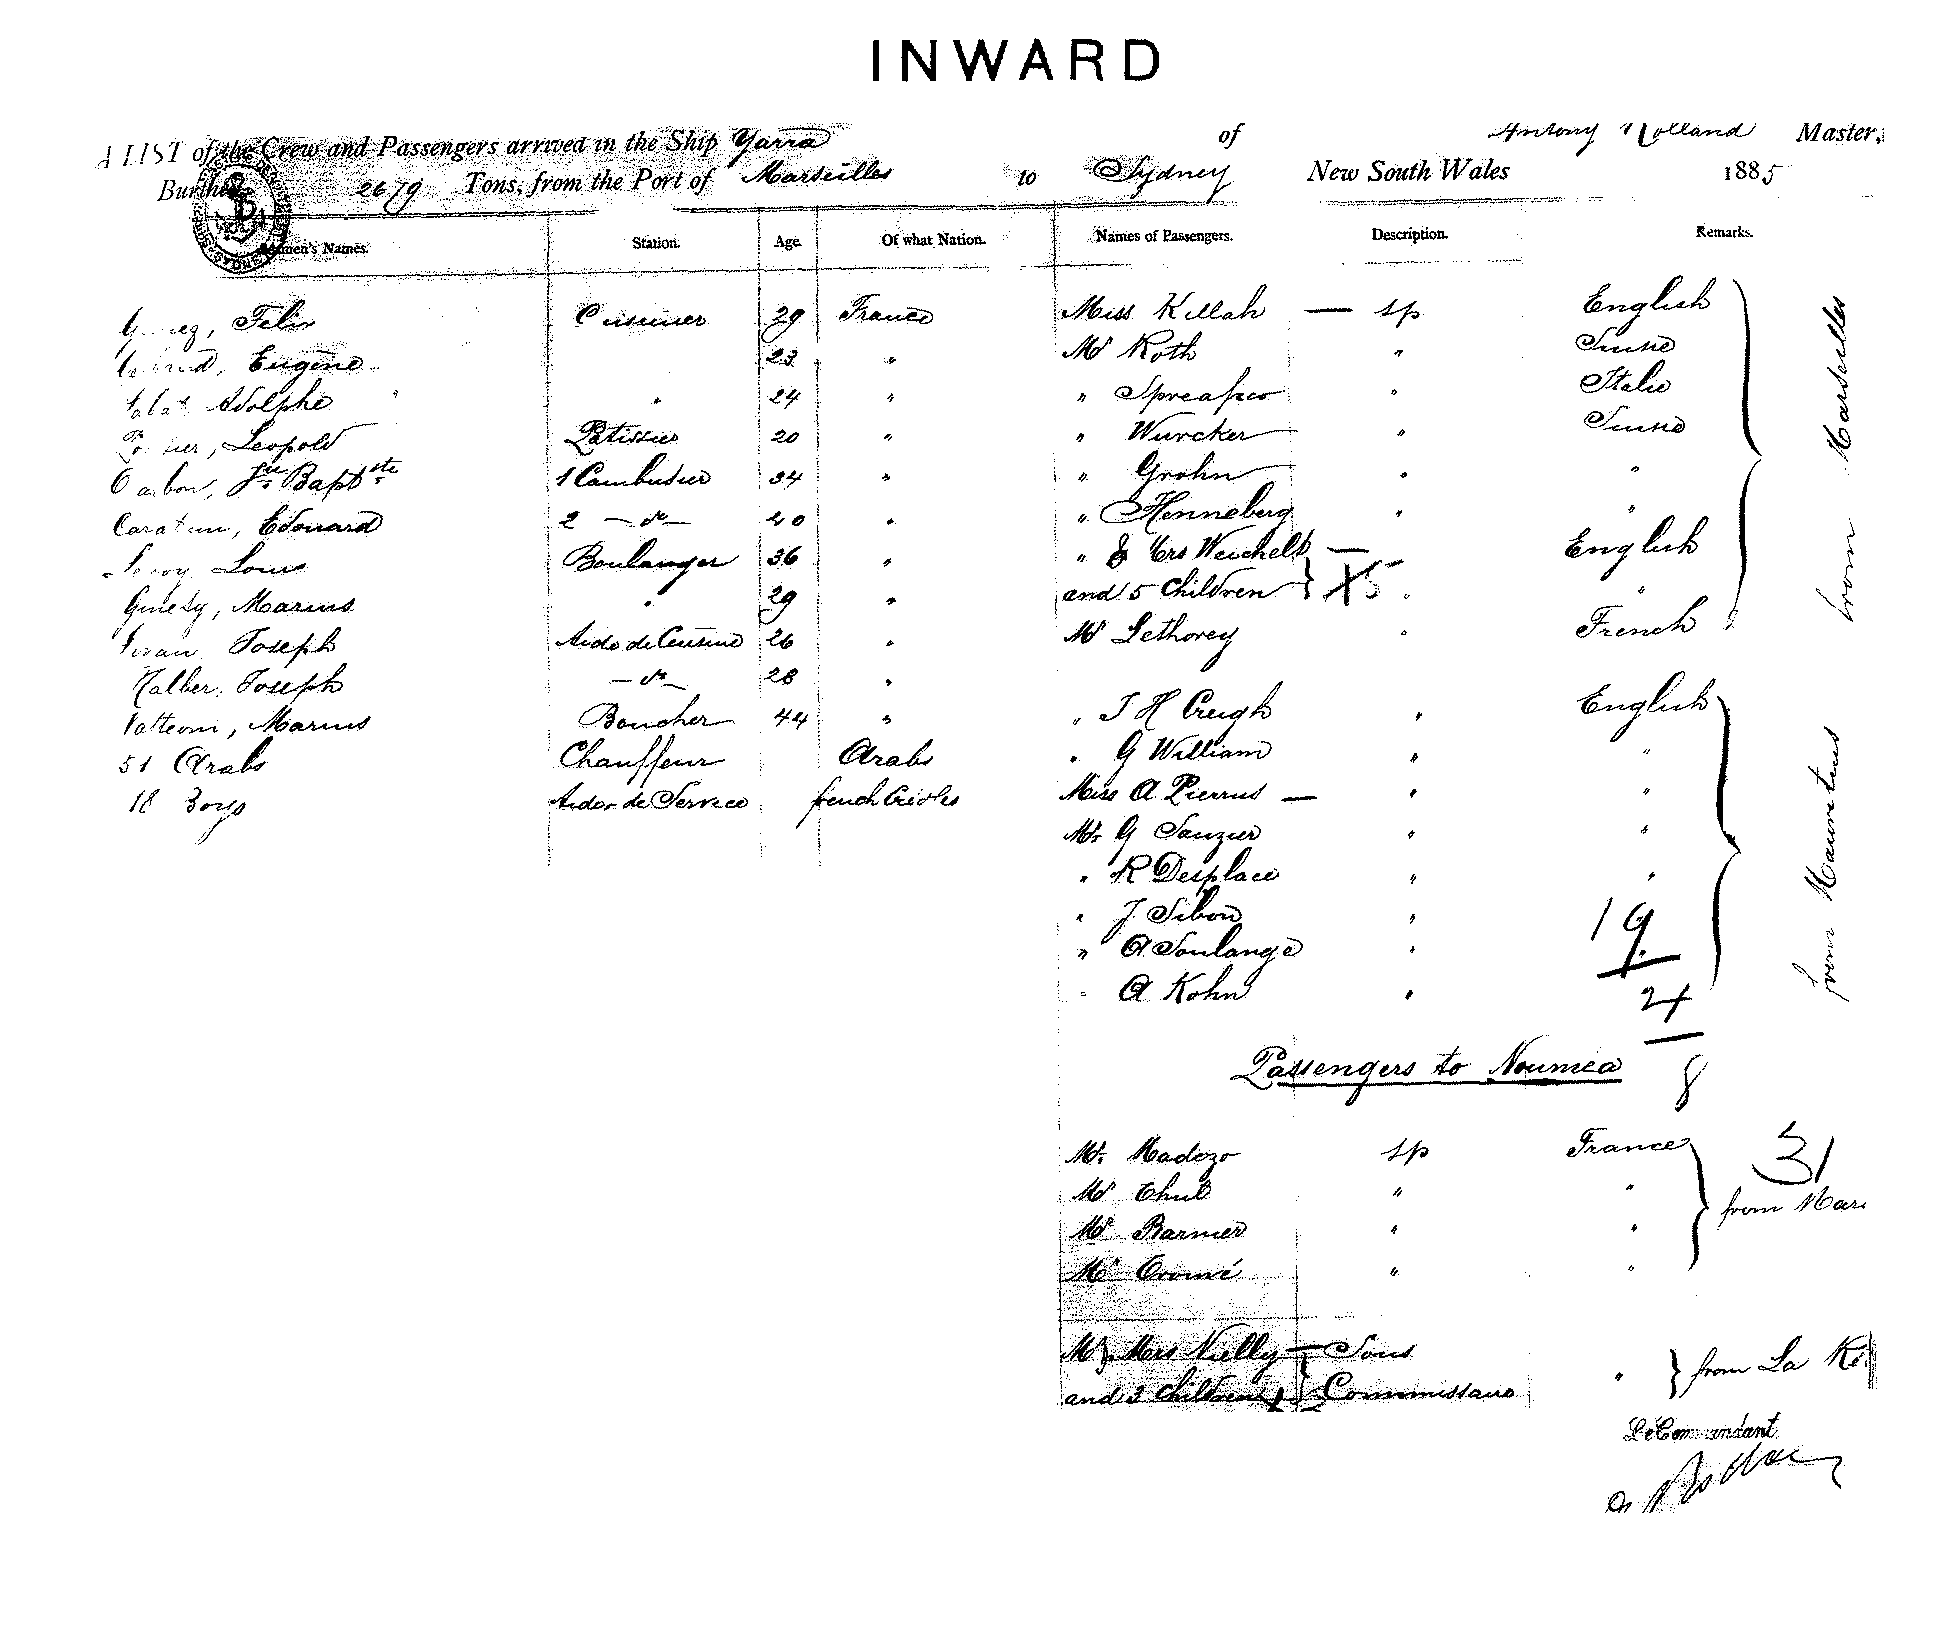 INWARD
A LIST of the Crew and Passengers arrived in the Ship Yarra of Antony Rolland Master,
Burthen 2679 Tons, from the Port of Marseilles to Sydney New South Wales 1885
Names. Station. Age. Of what Nation. Names of Passengers. Description. Remarks.
Felix Cuisinier 29 France Miss Killah — sp English
Eugène 23 " Mr Roth " Suisse
Adolphe " 24 " " Spreafico " Italie
Leopold Patissier 20 " " Wurcker " Suisse
Jn Baptste 1 Cambusier 34 " " Grohn " "
Edouard 2 — do — 40 " " Henneberg " "
Louis Boulanger 36 " " & Mrs Weichelt — English
Marius " 29 " and 5 Children } X5 " "
Joseph Aide de Cuisine 26 " Mr Lethorey " French
from Marseilles
Joseph — do — 28 "
Marius Boucher 44 " " J H Creigh " English
51 Arabs Chauffeur Arabs " G William " "
18 Boys Aides de Service french Créoles Miss A Pierrus — " "
Mr. G Sauzier " "
" R Desplace " "
" J. Sibon " 19
" A Soulange "
" A Kohn " 4
from Mauritius
Passengers to Noumea 8
Mr. Madozo sp France 31
Mr " " from Mars
Mr Barnier " "
Mr " "
Mr & Mrs Nielly — Sous
and 3 Children } Commissaire " } from La
Le Commandant